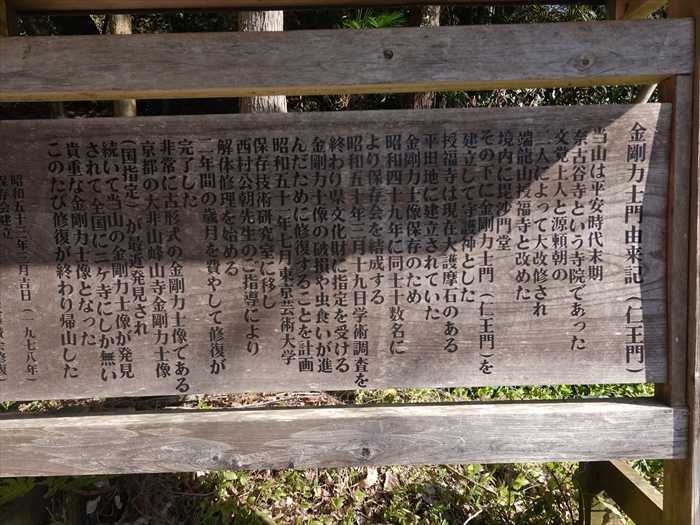 金剛力士門由来記（仁王門）
当山は平安時代末期
奈古谷寺という寺院であった
文覚上人と源頼朝の
二人によって大改修され
端龍山授福寺と改めた
境内に毘沙門堂
その下に金剛力士門（仁王門）を
建立して守護神とした
授福寺は現在大護摩石のある
平坦地に建立されていた
金剛力士像保存のため
昭和四十九年に同士十数名に
より保存会を結成する
昭和五十年三月十九日学術調査を
終わり県文化財に指定を受ける
金剛力士像の破損や虫食いが進
んだために修復することを計画
昭和五十一年七月東京芸術大学
保存技術研究室に移し
西村公朝先生のご指導により
解体修理を始める
二年間の歳月を費やして修復が
完了した
非常に古形式の金剛力士像である
京都の大非山峰山寺金剛力士像
（国指定）が最近発見され
続いて当山の金剛力士像が発見
されて全国に二ヶ寺にしか無い
貴重な金剛力士像となった
このたび修復が終わり帰山した
昭和五十三年三月吉日（一九七八年）
保存会建立